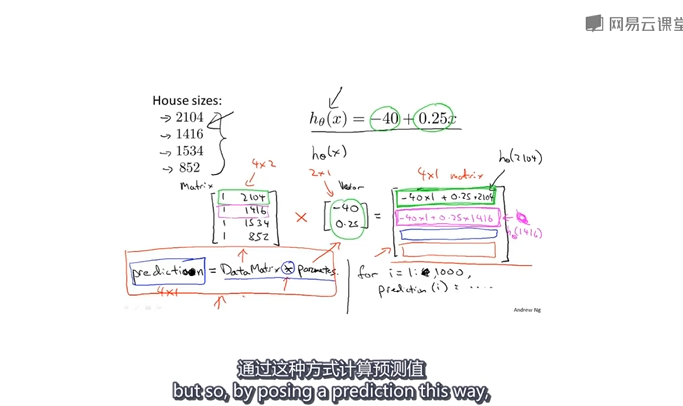 网易云课堂
House sizes:
→ 2104
→ 1416
→ 1534
→ 852
hθ(x) = -40 + 0.25x
hθ(x)
Matrix
4x2
1 2104
1 1416
1 1534
1 852
×
2x1
Vector
-40
0.25
=
4x1 matrix
hθ(2104)
-40x1 + 0.25*2104
-40x1 + 0.25x1416
hθ(1416)
prediction = DataMatrix * parameters.
4x1
for i = 1:1000,
prediction(i) = ....
Andrew Ng
通过这种方式计算预测值
but so, by posing a prediction this way,